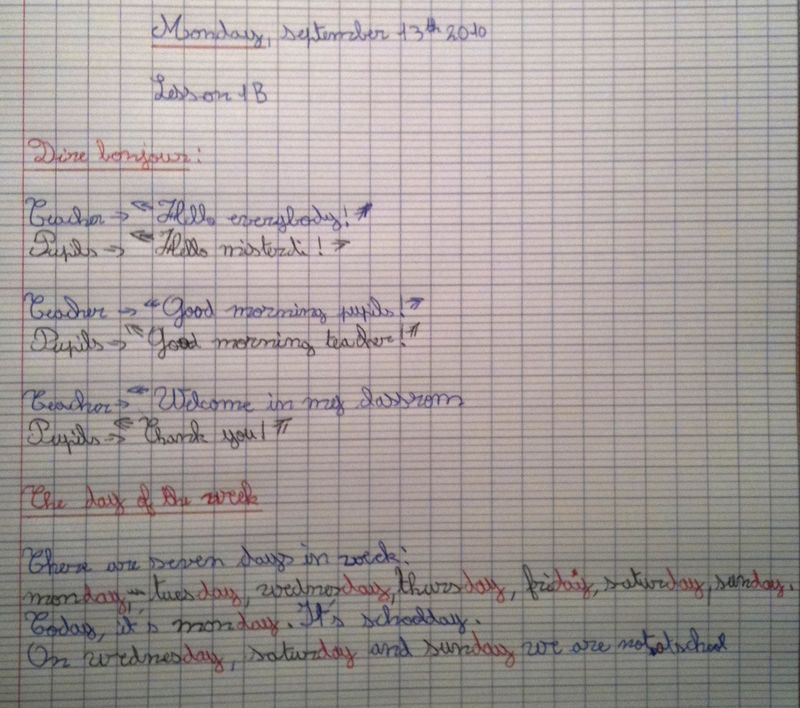 Monday, september 13th 2010
Lesson 1B
Dire bonjour:
Teacher → "Hello everybody!"
Pupils → "Hello misterdi!"
Teacher → "Good morning pupils!"
Pupils → "Good morning teacher!"
Teacher → "Welcome in my classrom
Pupils → "Thank you!"
The day of the week
There are seven days in week:
monday, tuesday, wednesday, thursday, friday, saturday, sunday.
Today, it's monday. It's schoolday.
On wednesday, saturday and sunday we are not at school